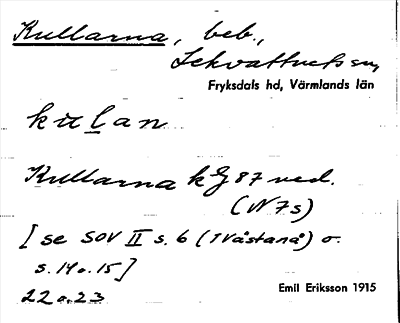 Kullarna, beb.,
Lekvattnets sn,
Fryksdals hd, Värmlands län
kulan
Kullarna k G 87 ved.
(N 7s)
[se SOV II s. 6 (I Västanå) o.
s. 14 o. 15]
22 o. 23
Emil Eriksson 1915